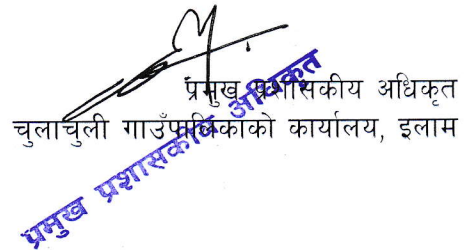 प्रमुख प्रशासकीय अधिकृत
चुलाचुली गाउँपालिकाको कार्यालय, इलाम
प्रमुख प्रशासकीय अधिकृत